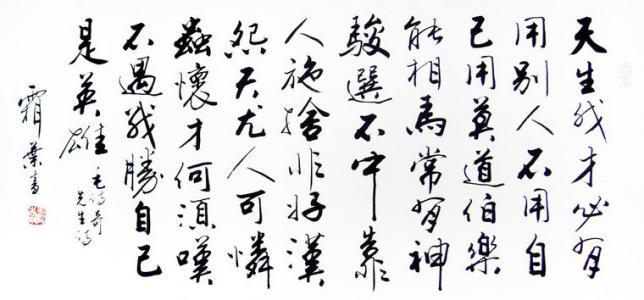 天生我才必有
用别人不用自
己用莫道伯樂
能相馬常有神
駿選不中靠
人施捨非好漢
怨天尤人可憐
蟲懷才何須嘆
不遇戰勝自己
是英雄
毛诗奇
先生诗
霜葉書